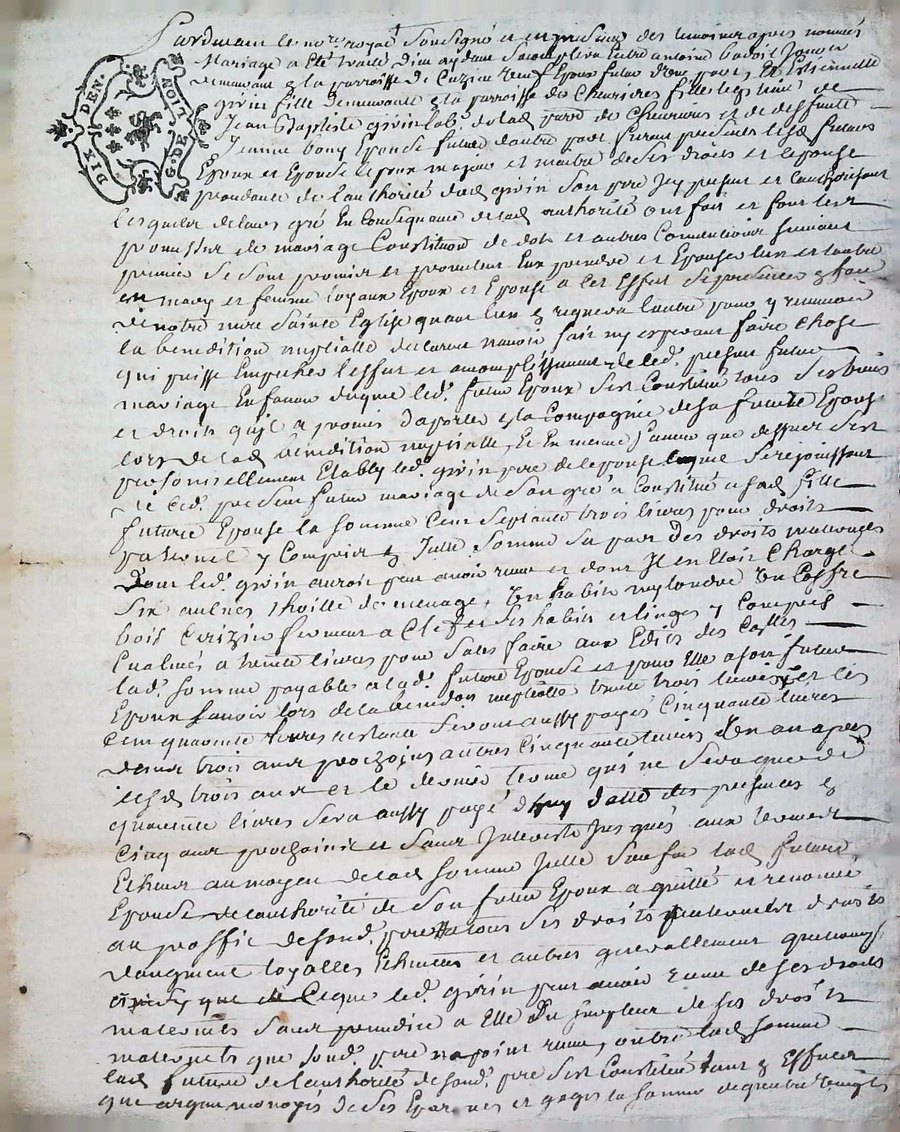 DIX DEN. G. DE LION
Pardevant le nore royal Soussigné et en presence des temoins apres nommés
Mariage a eté traité Entre antoine
remeurant a la parroisse de Epoux futur d'une part, Et Estiennette
givin fille demeurante a la parroisse de Cheurieres fille legitime de
Jean Baptiste givin lab. de lad. parre de Cheurieres et de deffunte
Jeanne bony Epouse future d'autre part furent presents lesd. futurs
Epoux et Epouse le poux majeur et maitre de ses droits et lepouse
procedante de l'authorité dud. givin Son pere Icy present et l'authorisant
lesquels de leurs gré En Consequance de lad. authorité ont fait et font leur
promesses de mariage Constitution de dot et autres Conventions Suivant
premier Se Sont promis et promettent Eux prendre et Epouser lun et lautre
en mary et femme loyaux Epoux et Epouse a cet Effet Se presenter a face
de notre mere Sainte Eglise quant lun Sera requis
la benedition nuptialle declarent navoir fait ny esperant faire Chose
qui puisse Empecher leffet et acomplissement de led. present futur
mariage En faveur duquel led. futur Epoux Sest Constitué tous Ses biens
et droits quil a promis d'aporter a la Compagnie de Sa future Epouse
lors de lad. benedition nuptialle, Et En meme faveur que dessus Sest
personnellement Etably led. givin pere de lepouse lequel Se rejouissant
de ced. present futur mariage de Son gré a Constitué a sad. fille
future Epouse la Somme Cent Septante trois livres pour droits
paternel y Compris Icelle Somme Sa part des droits maternels
Dont led. givin auroit peu avoir reçue et dont Il en Etoit Chargé
Six aulnes thoille de menage, un habit un Coffre
bois Cerizier fermant a Clef et Ses habits et linges y Compris
Evalués a trente livres pour Sales faire aux Edits des
lad. Somme payable a lad. future Epouse et pour Elle a son futur
Epoux Savoir lors de la benedition nuptialle trente trois livres, et les
Cent quarente livres restante Seront aussy payés Cinquante livres
dans trois ans prochains autres Cinquante livres Un an apres
lesd. trois ans et le dernier terme qui ne Sera que de
quarente livres Sera aussy payé d'huy datte des presentes a
Cinq ans prochains et Sans Interests Jusqués aux termes
Echeus au moyen de lad. Somme Icelle Susfat lad. future
Epouse de lauthorité de Son futur Epoux a quitté et renoncé
au proffit de Sond. pere a tous Ses droits paternels droits
d'augment loyalles Echeues et autres generallement quelconques
que Ceque led. givin peut avoir reçue de Ses droits
maternels Sans prejudice a Elle Du Surplus de Ses droits
maternels que Sond. pere na point reçue, outre lad. Somme
lad. future de l'authorité de Sond. pere Sest Constitué tant En Effets
que argent monoyés de Ses Epargnes et gages la Somme de quatre vingts